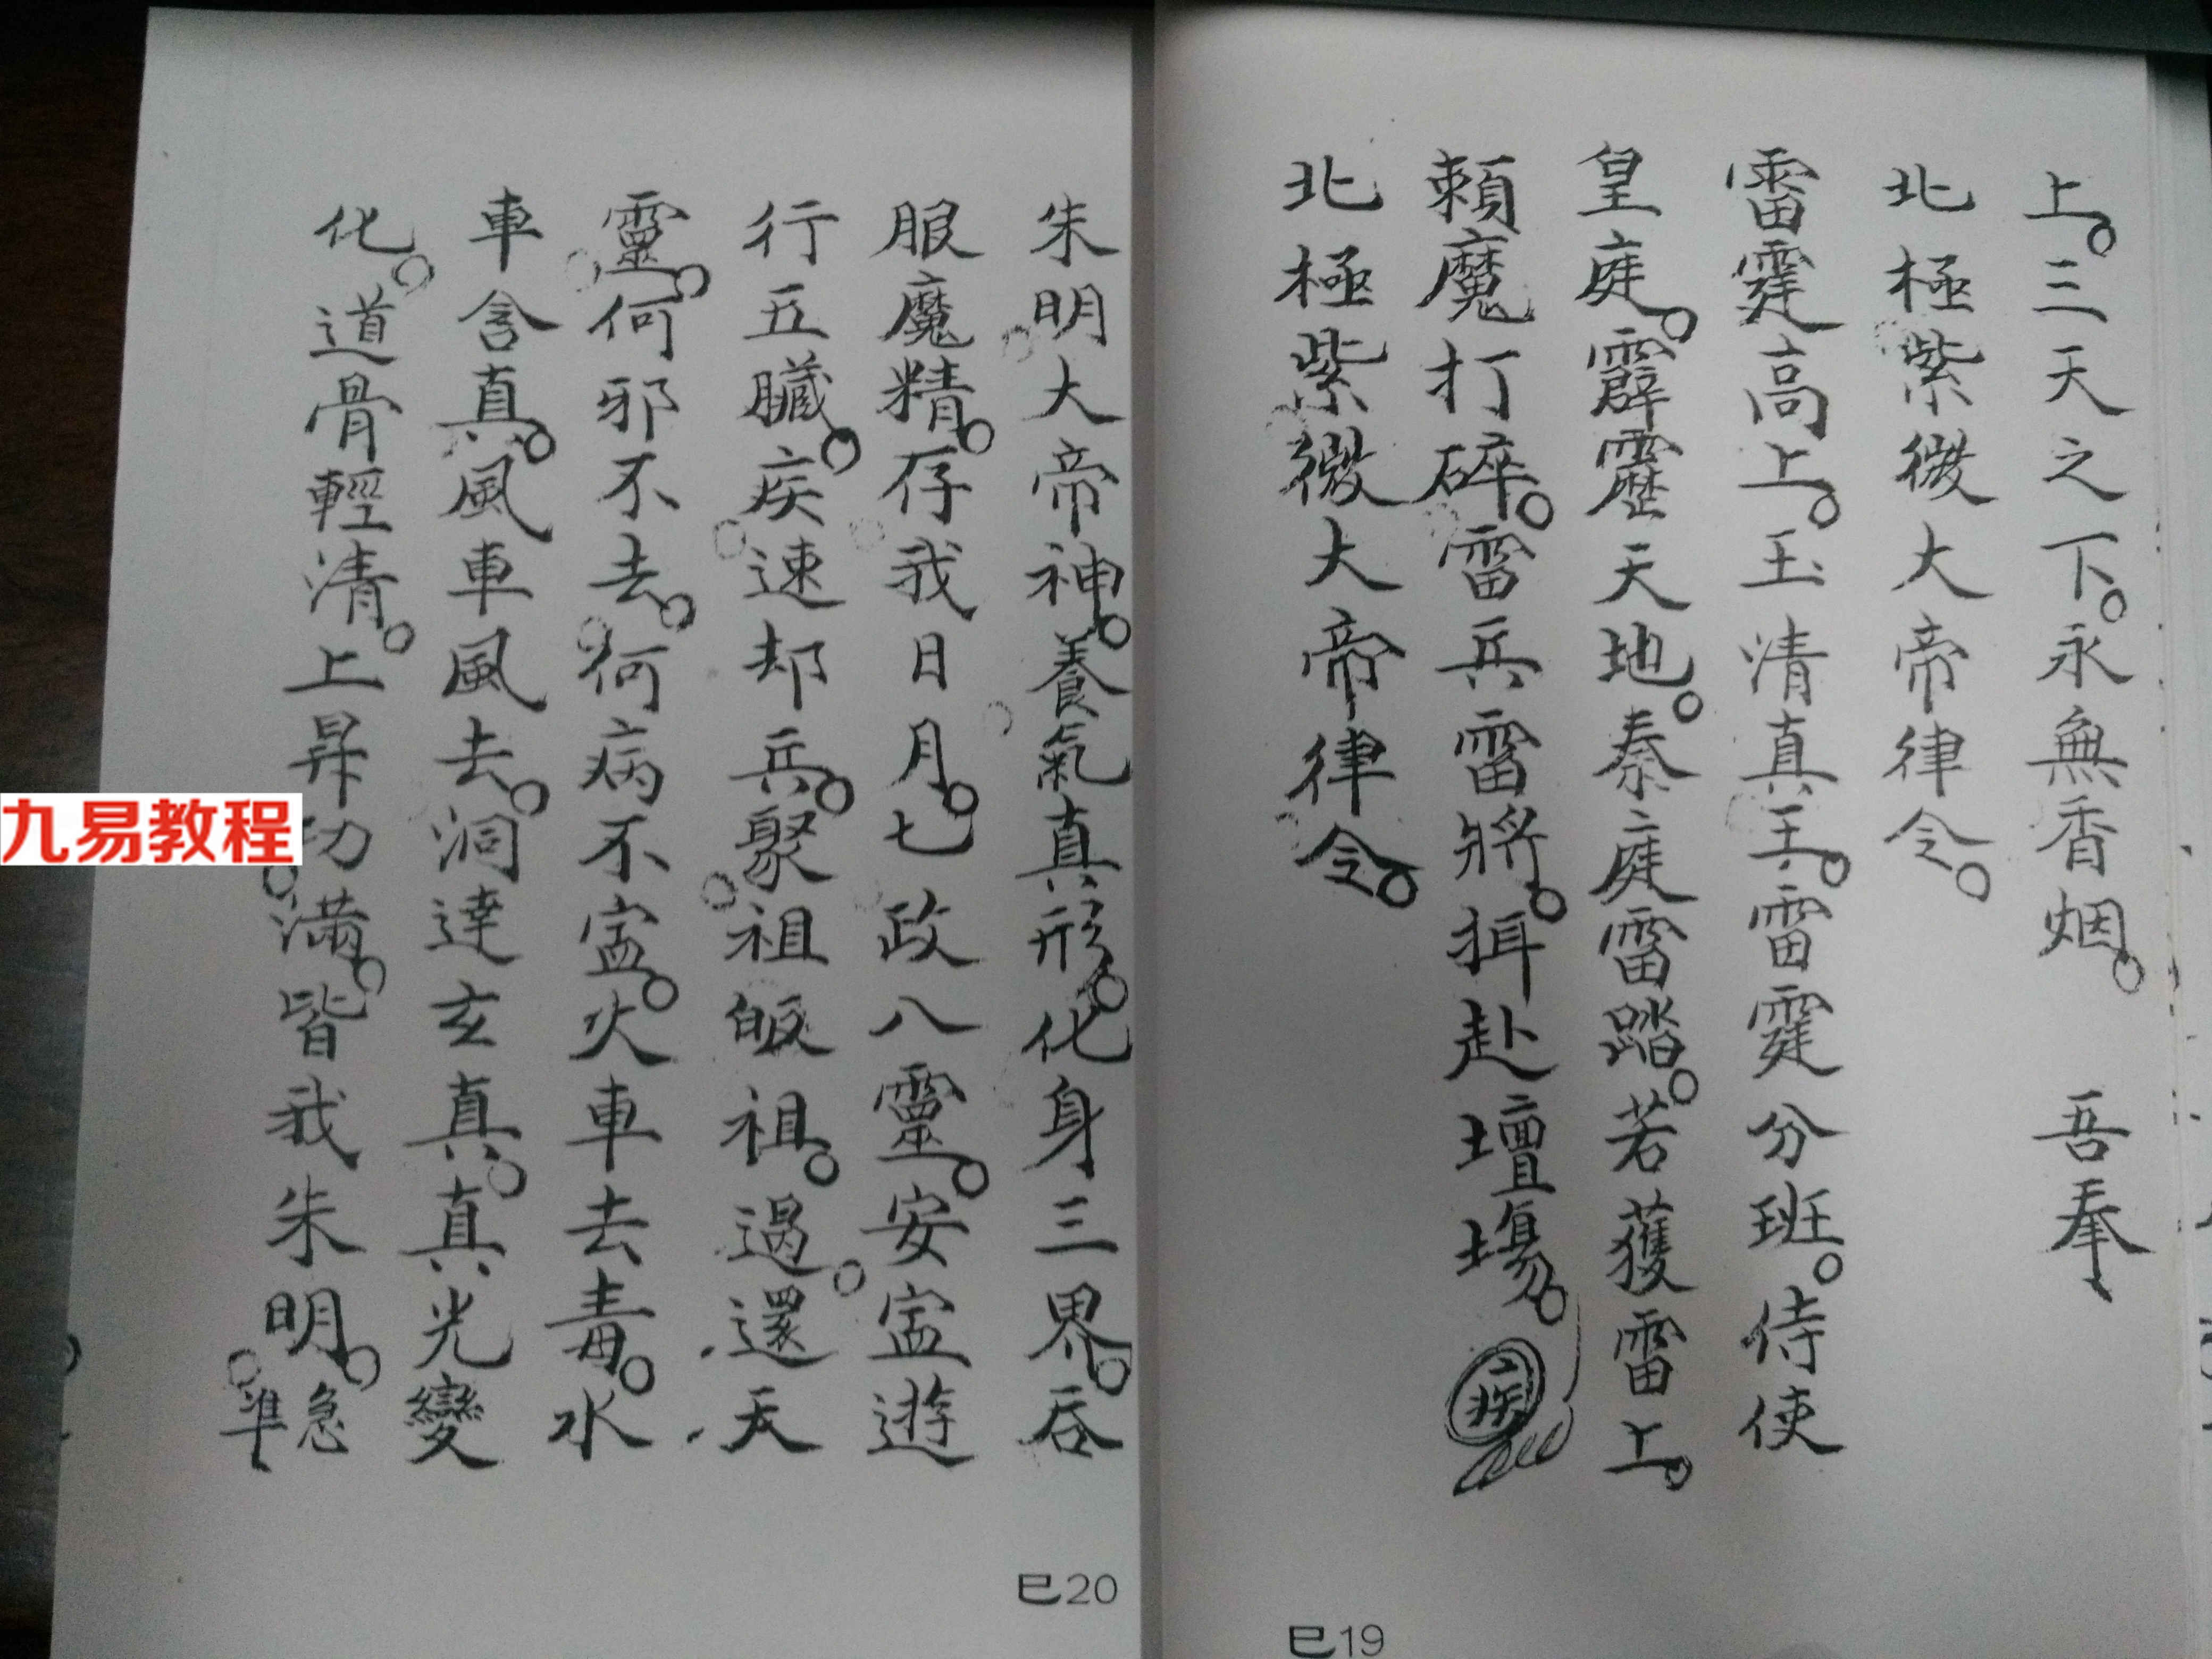 上。三天之下。永無香烟。 吾奉
北極紫微大帝律令。
雷霆高上。玉清真王。雷霆分班。侍使
皇庭。霹靂天地。秦庭雷踏。若獲雷上。
賴魔打碎。雷兵雷將。揖赴壇場。疾
北極紫微大帝律令。
朱明大帝神。養氣真形。化身三界。吞
服魔精。存我日月。七政八靈。安寍遊
行五臟。疾速却兵。聚祖皈祖。過還天
靈。何邪不去。何病不寍。火車去毒。水
車含真。風車風去。洞達玄真。真光變
化。道骨輕清。上昇功滿。皆我朱明。急
準
巳20
巳19
九易教程